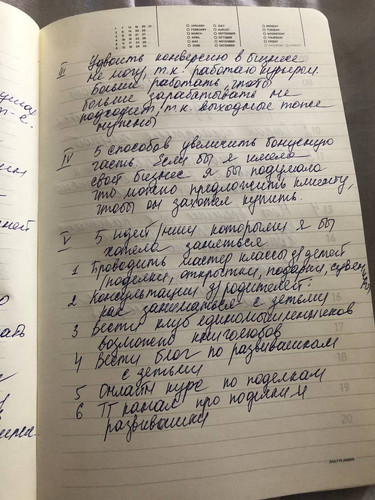 III Удвоить конверсию в бизнесе
не могу, т.к. работаю курьером.
Больше работать, чтобы
больше зарабатывать не
подходит, т.к. выходные тоже
нужны
IV 5 способов увеличить бонусную
часть. Если бы я имела
свой бизнес я бы подумала
что можно предложить клиенту,
чтобы он захотел купить.
V 5 идей/ниш которыми я бы
хотела заняться
1 Проводить мастер классы д/детей
/поделки, открытки, подарки,
2 Консультации д/родителей:
как заниматься с детьми
3 Вести клуб единомышленников
возможно книголюбов
4 Вести блог по развивашкам
с детьми
5 Онлайн курс по поделкам
6 ТГ канал про поделки и
развивашки
JANUARY
FEBRUARY
MARCH
APRIL
MAY
JUNE
JULY
AUGUST
SEPTEMBER
OCTOBER
NOVEMBER
DECEMBER
MONDAY
TUESDAY
WEDNESDAY
THURSDAY
FRIDAY
16
17
18
19
20
DAILY PLANNER